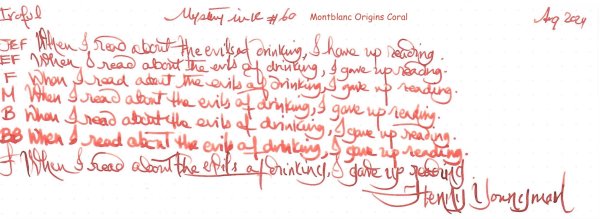 Iroful Mystery ink #60 Montblanc Origins Coral Aug 2024
JEF When I read about the evils of drinking, I have up reading.
EF When I read about the evils of drinking, I gave up reading.
F When I read about the evils of drinking, I gave up reading.
M When I read about the evils of drinking, I gave up reading.
B When I read about the evils of drinking, I gave up reading.
BB When I read about the evils of drinking, I gave up reading.
J When I read about the evils of drinking, I gave up reading
Henny Youngman